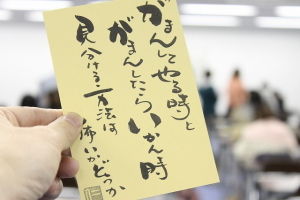 がまんしてやる時と
がまんしたらいかん時
見分ける方法は
怖いかどうか